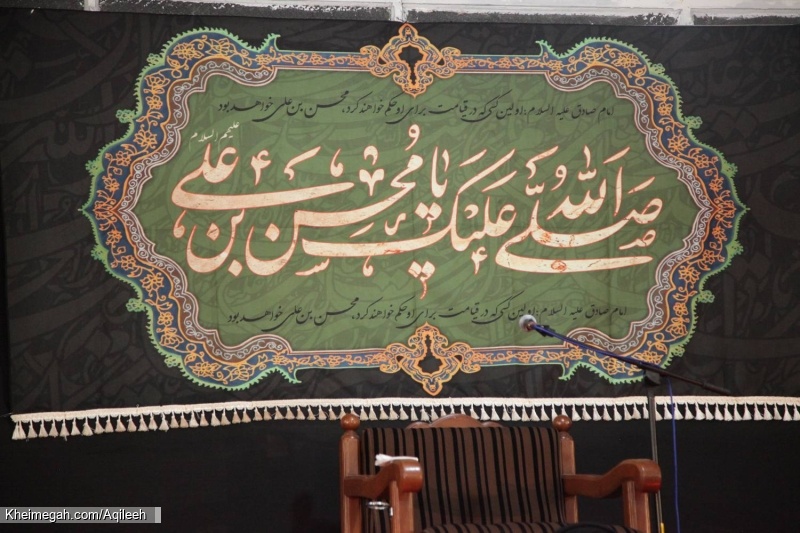 امام صادق علیه السلام: اولین کسی که در قیامت برای او حکم خواهند کرد، محسن بن علی خواهد بود
علیهم السلام
صلی الله علیک یا محسن بن علی
امام صادق علیه السلام: اولین کسی که در قیامت برای او حکم خواهند کرد، محسن بن علی خواهد بود
Kheimegah.com/Aqileeh